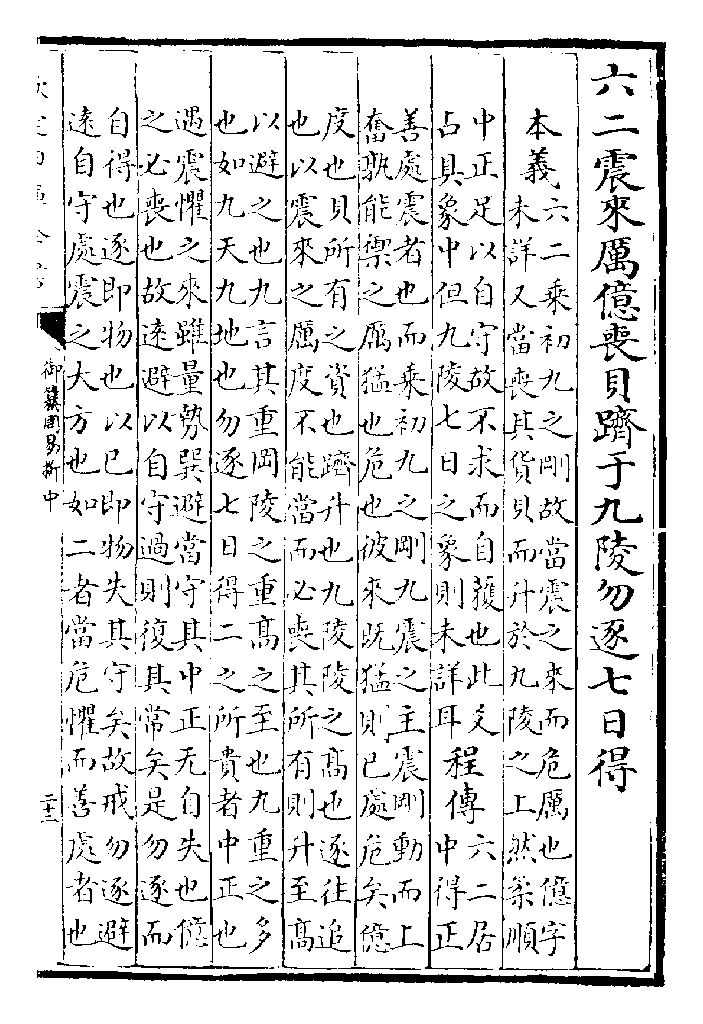 六二震來厲億喪貝躋于九陵勿逐七日得
本義六二乗初九之剛故當震之來而危厲也億字
未詳又當喪其貨貝而升於九陵之上然柔順
中正足以自守故不求而自獲也此爻
占具象中但九陵七日之象則未詳耳
程傳六二居
中得正
善處震者也而乗初九之剛九震之主震剛動而上
奮孰能禦之厲猛也危也彼來既猛則已處危矣億
度也貝所有之資也躋升也九陵陵之髙也逐往追
也以震來之厲度不能當而必喪其所有則升至髙
以避之也九言其重岡陵之重髙之至也九重之多
也如九天九地也勿逐七日得二之所貴者中正也
遇震懼之來雖量勢巽避當守其中正无自失也億
之必喪也故逺避以自守過則復其常矣是勿逐而
自得也逐即物也以已即物失其守矣故戒勿逐避
逺自守處震之大方也如二者當危懼而善處者也
御纂周易折中
二十三